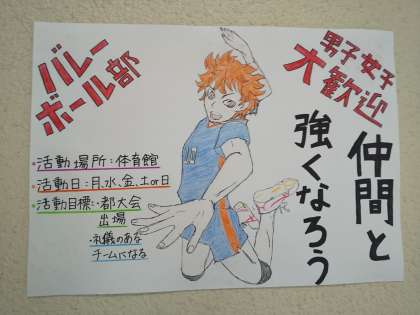 バレー
ボール部
男子女子
大歓迎
仲間と
強くなろう
・活動場所：体育館
・活動日：月、水、金、土or日
・活動目標：・都大会
出場
・礼儀のある
チームになる